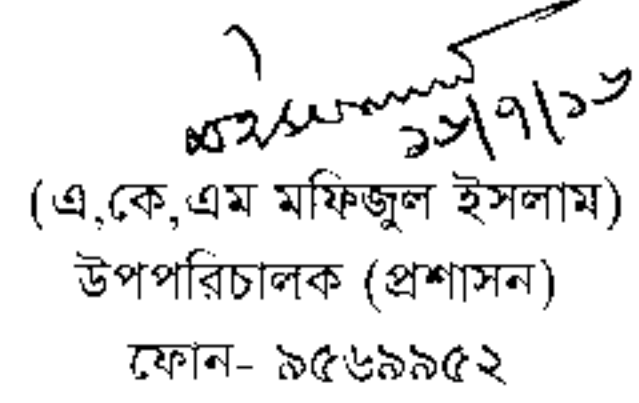 ১৬/৭/১৬
(এ,কে,এম মফিজুল ইসলাম)
উপপরিচালক (প্রশাসন)
ফোন- ৯৫৬৯৯৫২